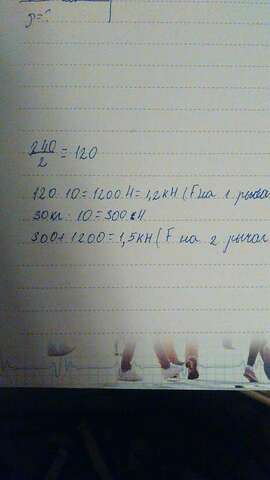 p=?
240/2 = 120
120 · 10 = 1200 Н = 1,2 кН (F на 1 рычаг
30 кг · 10 = 300 кН
300 + 1200 = 1,5 кН (F на 2 рычаг